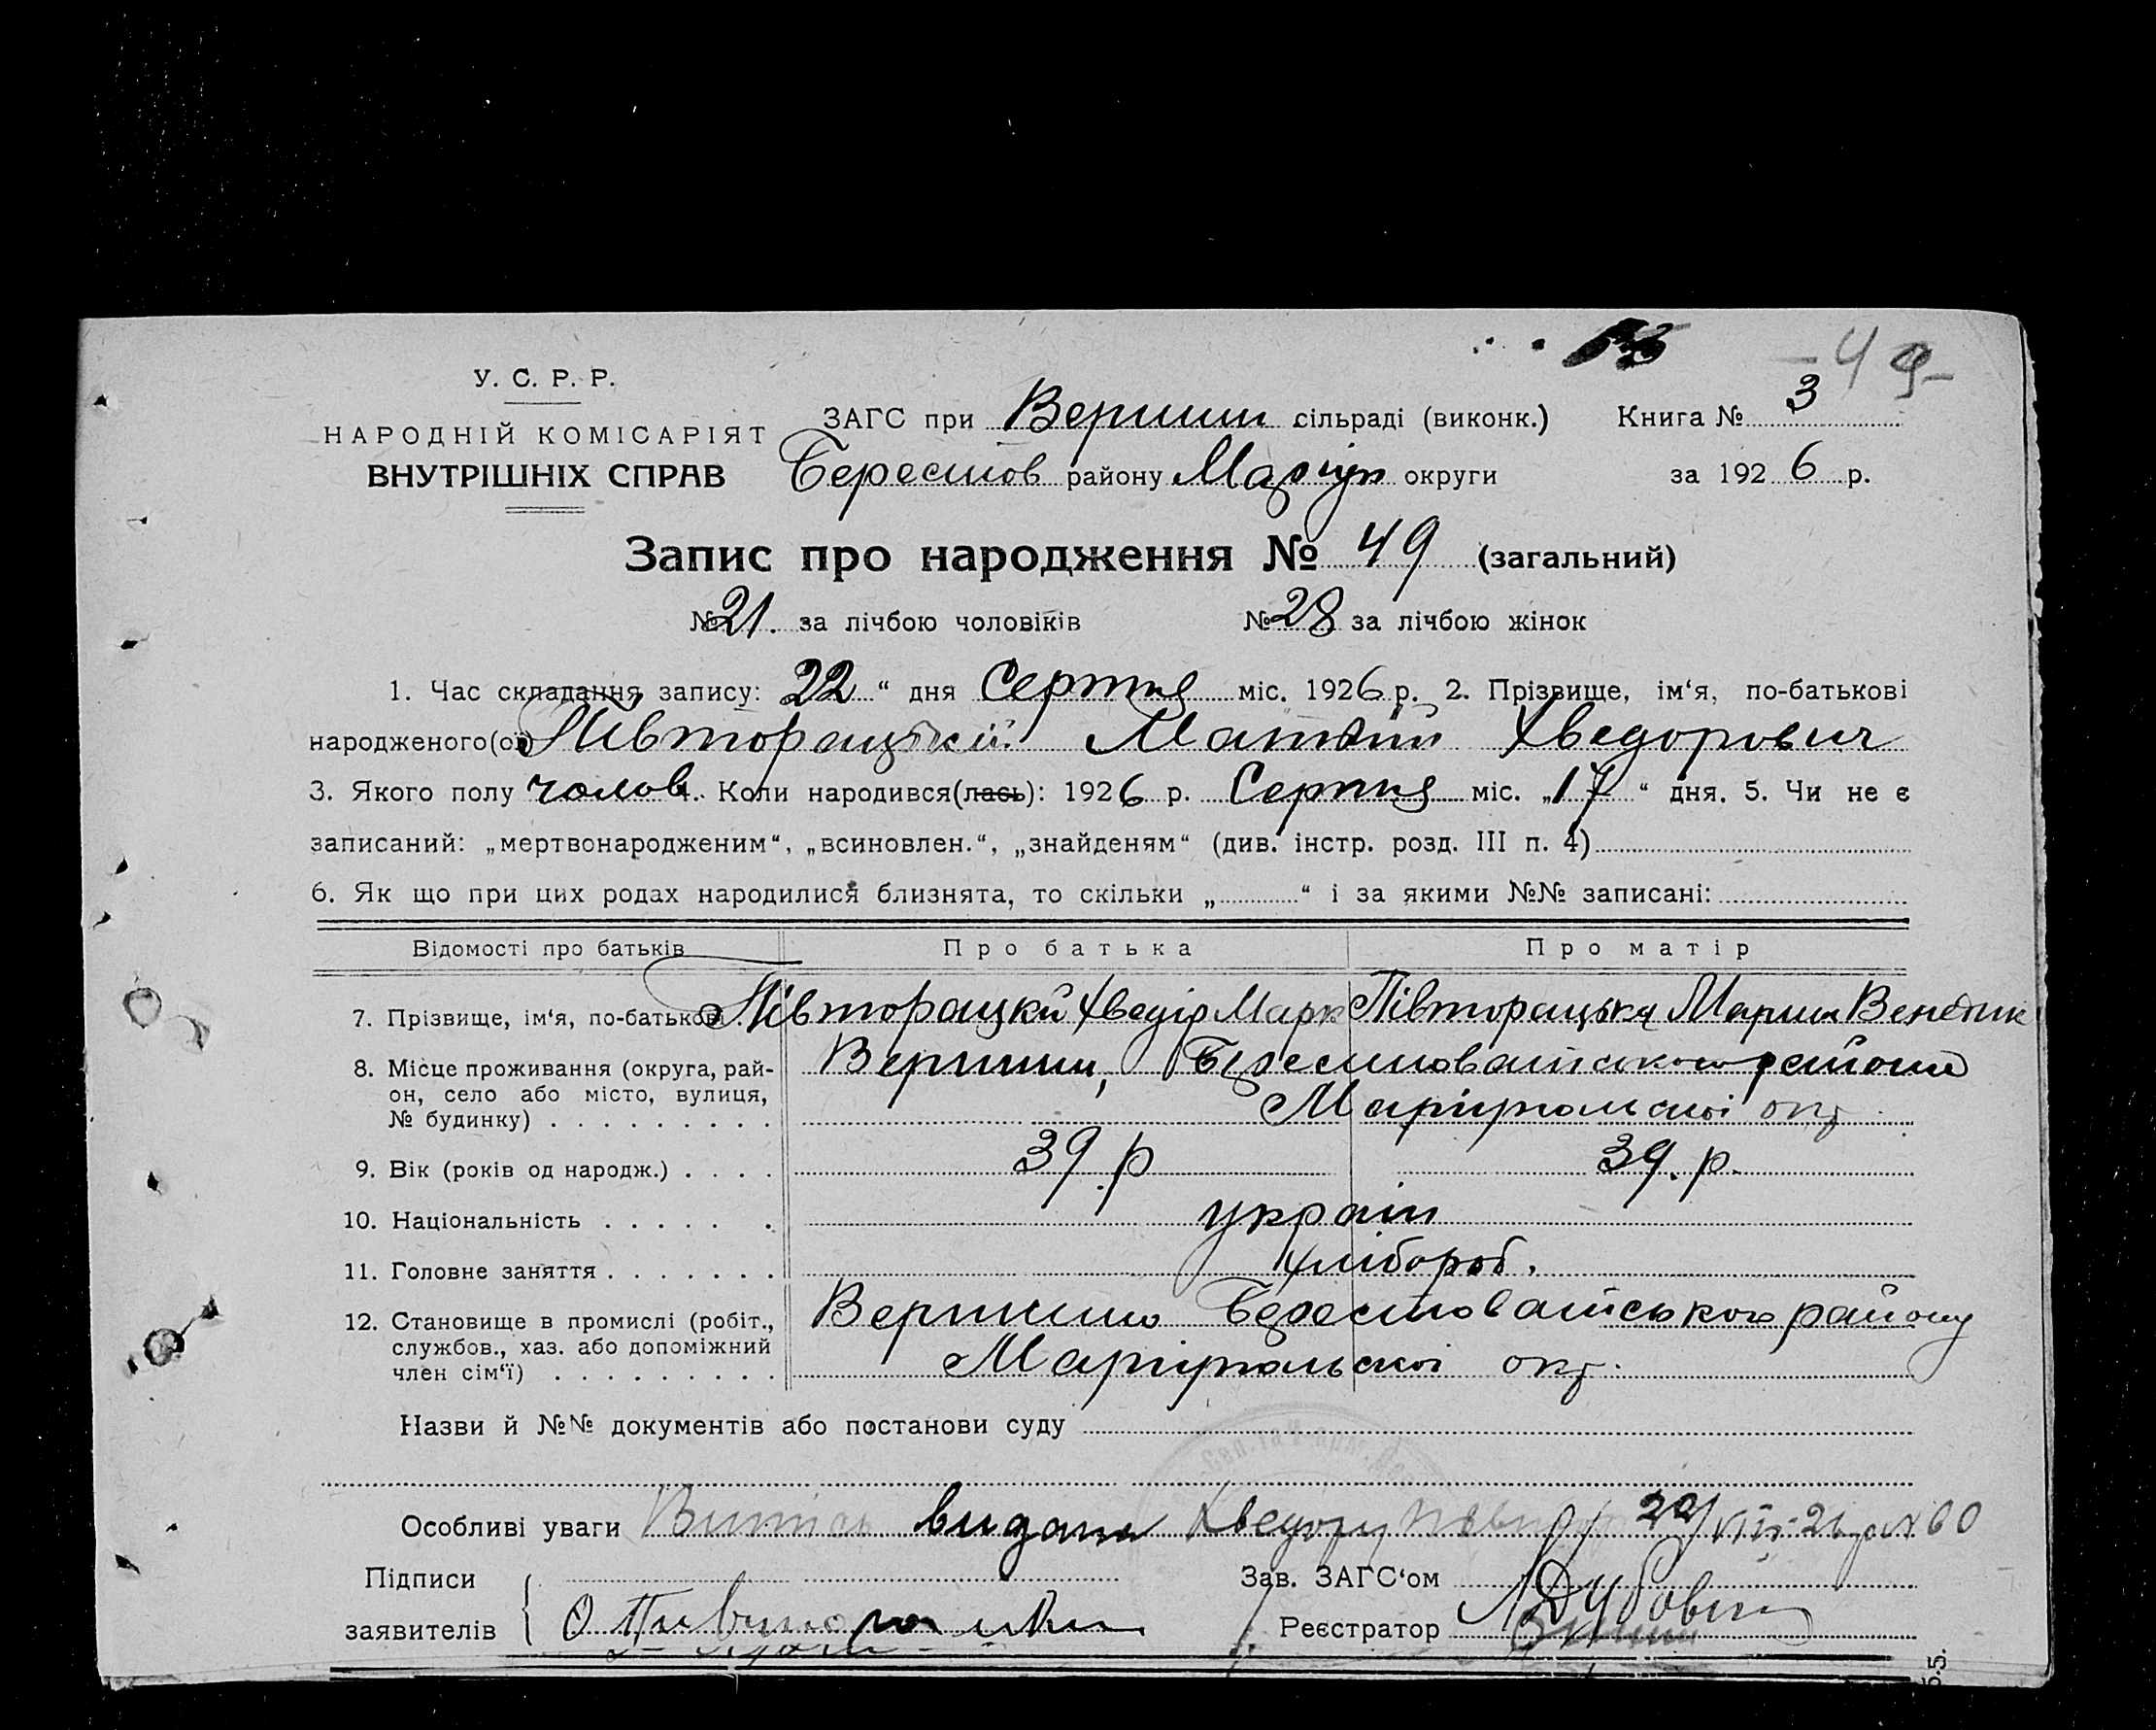 49
У. С. Р. Р.
НАРОДНІЙ КОМІСАРІЯТ
ВНУТРІШНІХ СПРАВ
ЗАГС при Вершин сільраді (виконк.) Книга № 3
Берестов району Маріуп округи за 1926 р.
Запис про народження № 49 (загальний)
№ 21. за лічбою чоловіків № 28 за лічбою жінок
1. Час складання запису: 22 “ дня Серпня міс. 1926 р. 2. Прізвище, ім‘я, по-батькові
народженого(ої) Півторацький Матвій Хведорович
3. Якого полу чолов. Коли народився(лась): 1926 р. Серпня міс. „17“ дня. 5. Чи не є
записаний: „мертвонародженим“, „всиновлен.“, „знайденям“ (див. інстр. розд. III п. 4)
6. Як що при цих родах народилися близнята, то скільки „ “ і за якими №№ записані:
Відомості про батьків Про батька Про матір
7. Прізвище, ім‘я, по-батькові Півторацкй Хведір Марк Півторацька Мария Венедик
8. Місце проживання (округа, рай-
он, село або місто, вулиця,
№ будинку) Вершин, Берестоваиського району
Маріупольскої окр.
9. Вік (років од народж.) 39 р 39. р.
10. Національність украін
11. Головне заняття хлібороб.
12. Становище в промислі (робіт.,
службов., хаз. або допоміжний
член сім‘ї) Вершино Берестоваиського району
Маріупольскоі окр.
Назви й №№ документів або постанови суду
Особливі уваги Витяг видан Хведору 22/VIII-26 р № 60
Підписи
заявителів
Зав. ЗАГС‘ом
Реєстратор